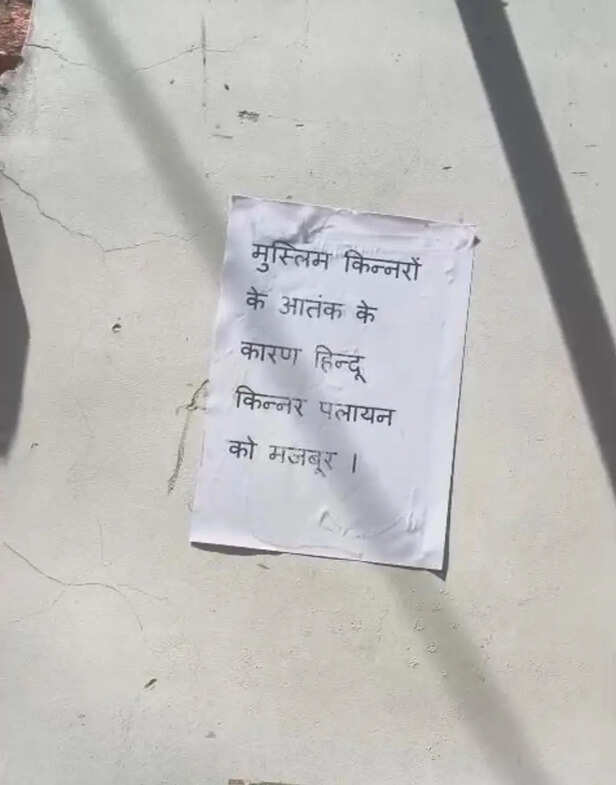 मुस्लिम किन्नरों
के आतंक के
कारण हिन्दू
किन्नर पलायन
को मजबूर ।